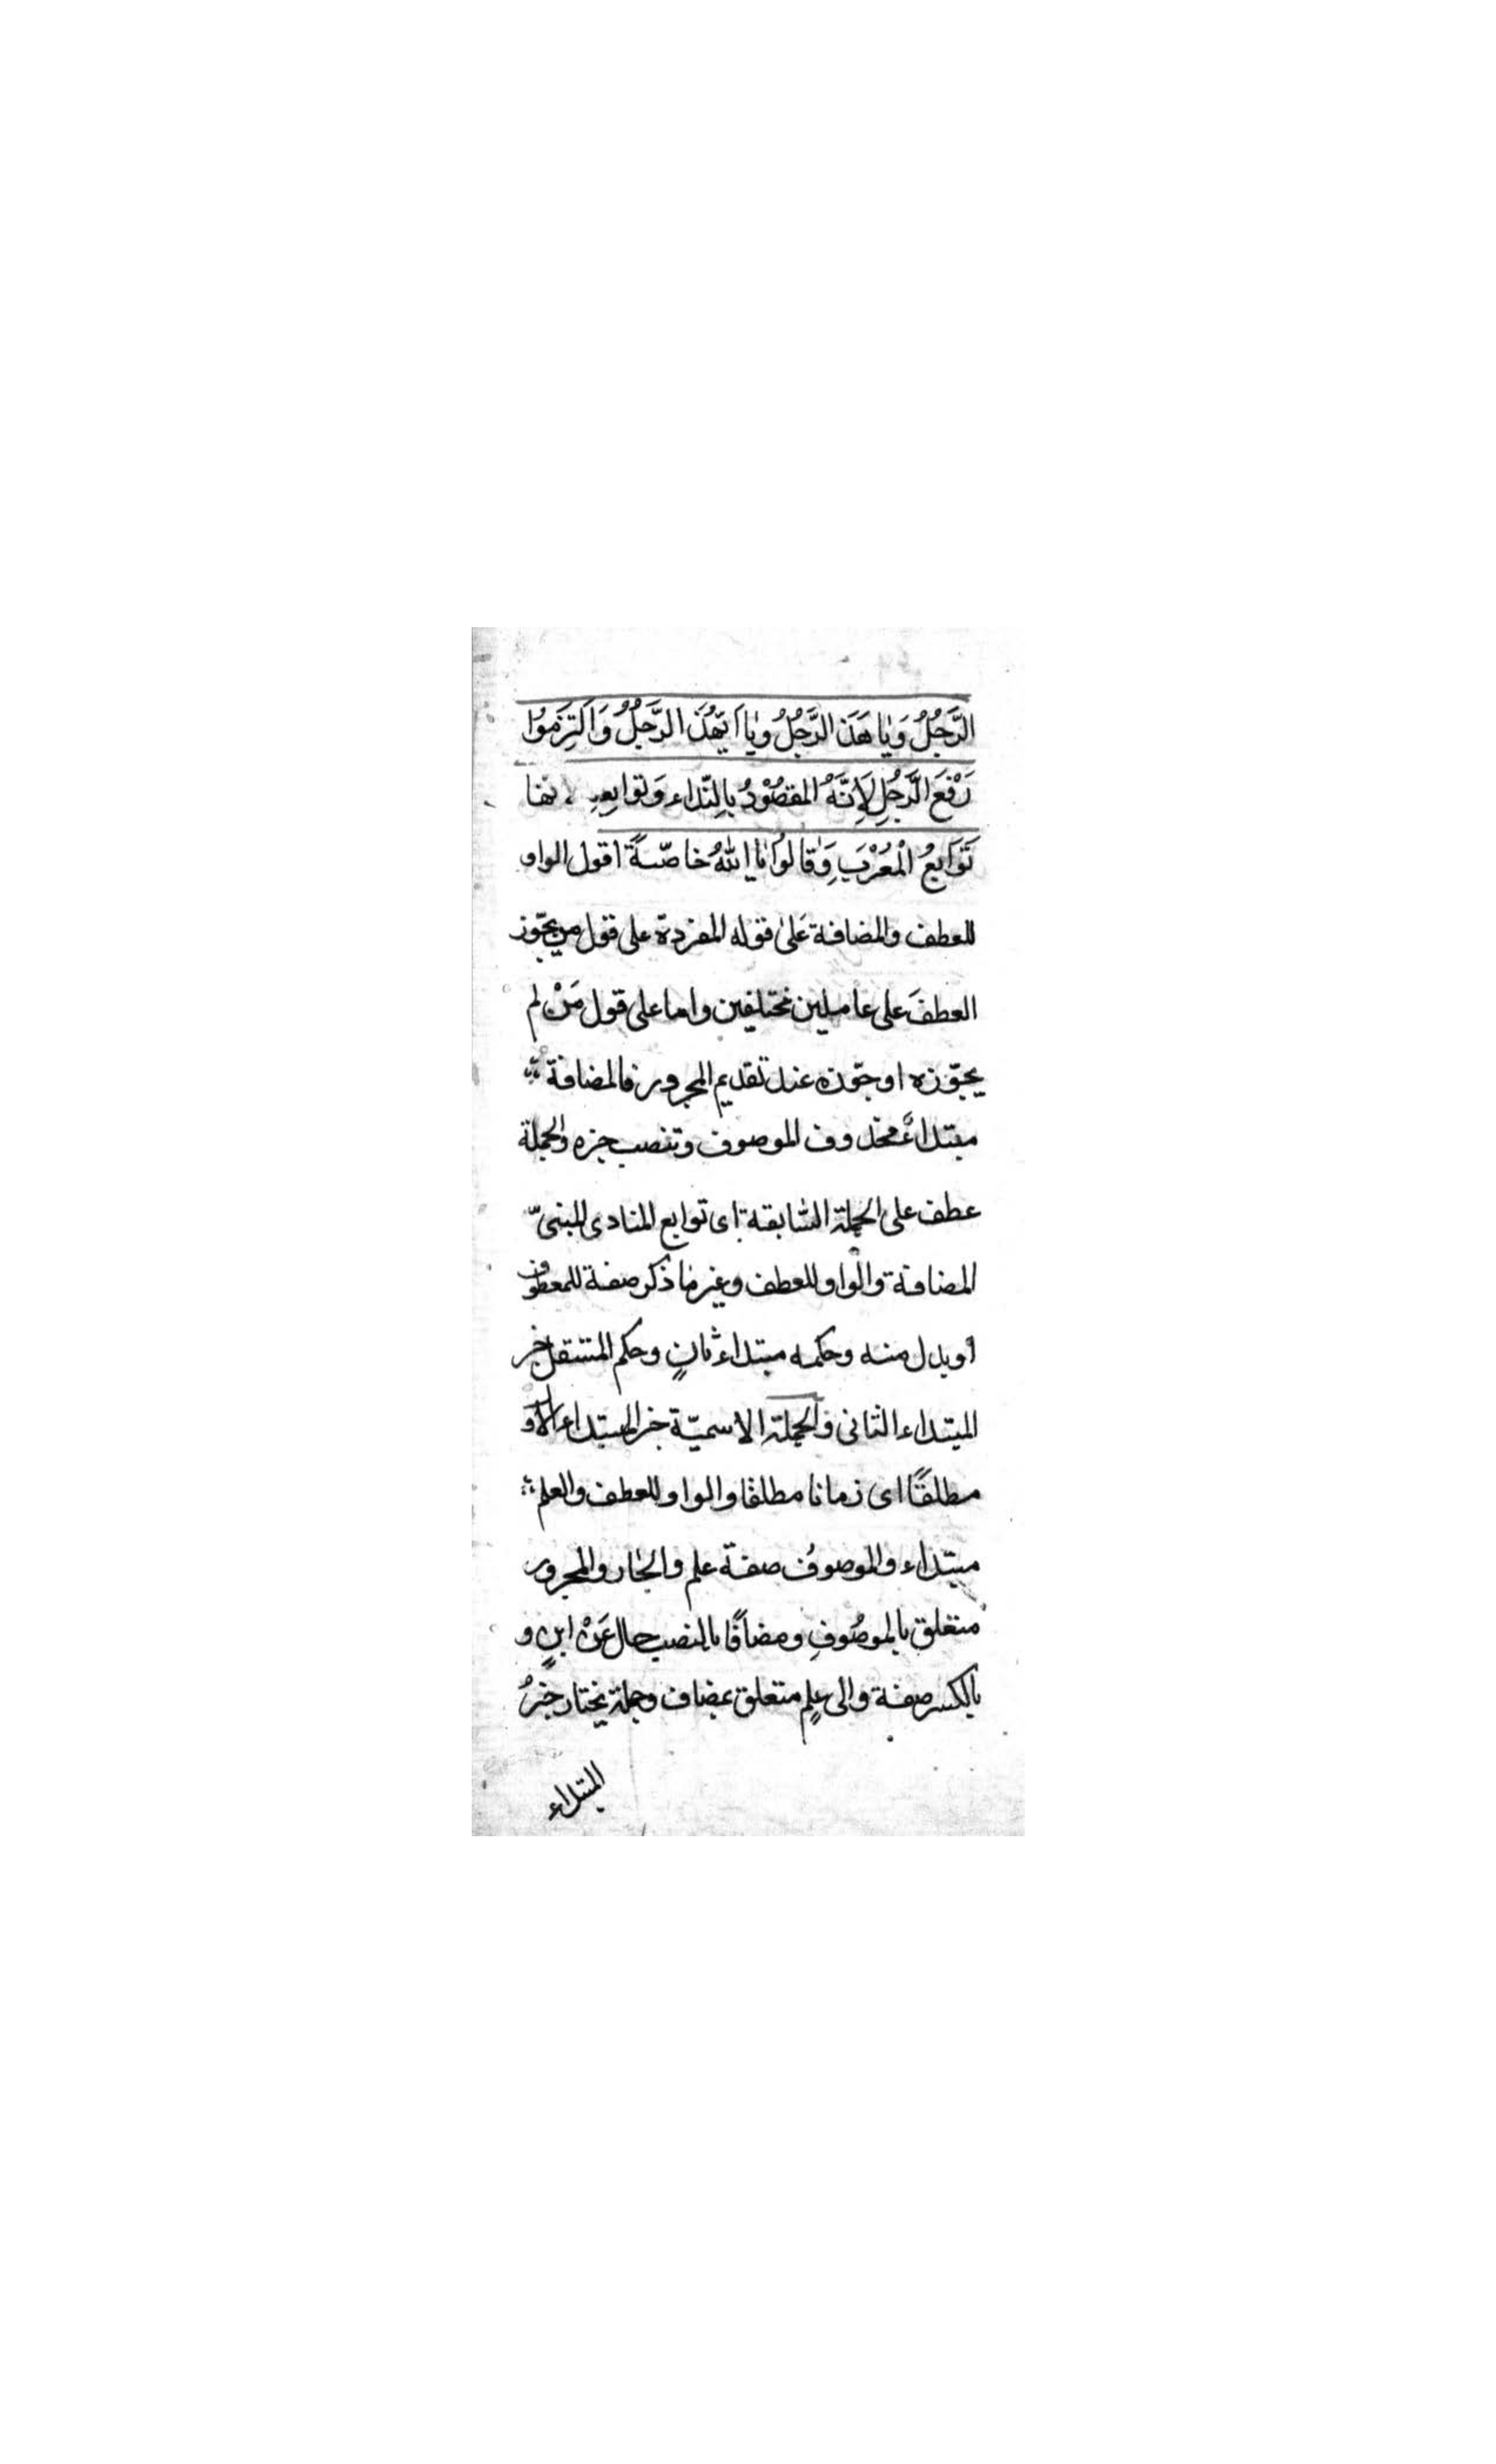 الرَّجُلُ وَيَا هَذَا الرَّجُلُ وَيَا اَيُّهَذَا الرَّجُلُ وَاَلْتَزَمُوا
رَفْعَ الرَّجُلِ لِاَنَّهُ المقصُوْدُ بِالنِّداء وَتوابِعِهِ لانها
تَوَابِعُ الْمُعْرَبِ وَقَالُوا يَا اللهُ خاصّةً اقول الواو
للعطف والمضافة عَلىٰ قوله المفردة على قول من يجّوز
العطفَ على عاملين مختلفين واما على قول مَنْ لم
يجوّزه او جوّزه عند تقديم المجرور فالمضافة
مبتداءً محذوف الموصوف وتنصب خبره والجملة
عطف على الجملة السّابقة اى توابع المنادى المبنىّ
المضافة والواو للعطف وغير ما ذكر صفة للمعطوف
أو بدل منه وحكمه مبتداء ثانٍ وحكم المستقل خبر
المبتداء الثانى والجملة الاسميّة خبر المبتداء الأول
مطلقًا اى زمانا مطلقا والواو للعطف والعلم
مبتداء والموصوفُ صفة علم والجار والمجرور
متعلق بالموصُوفِ ومضافًا بالنصب حال عَنْ ابنٍ و
بالكسر صفة والى علمٍ متعلق بمضاف وجملة يختار خبرُ
المبتداء